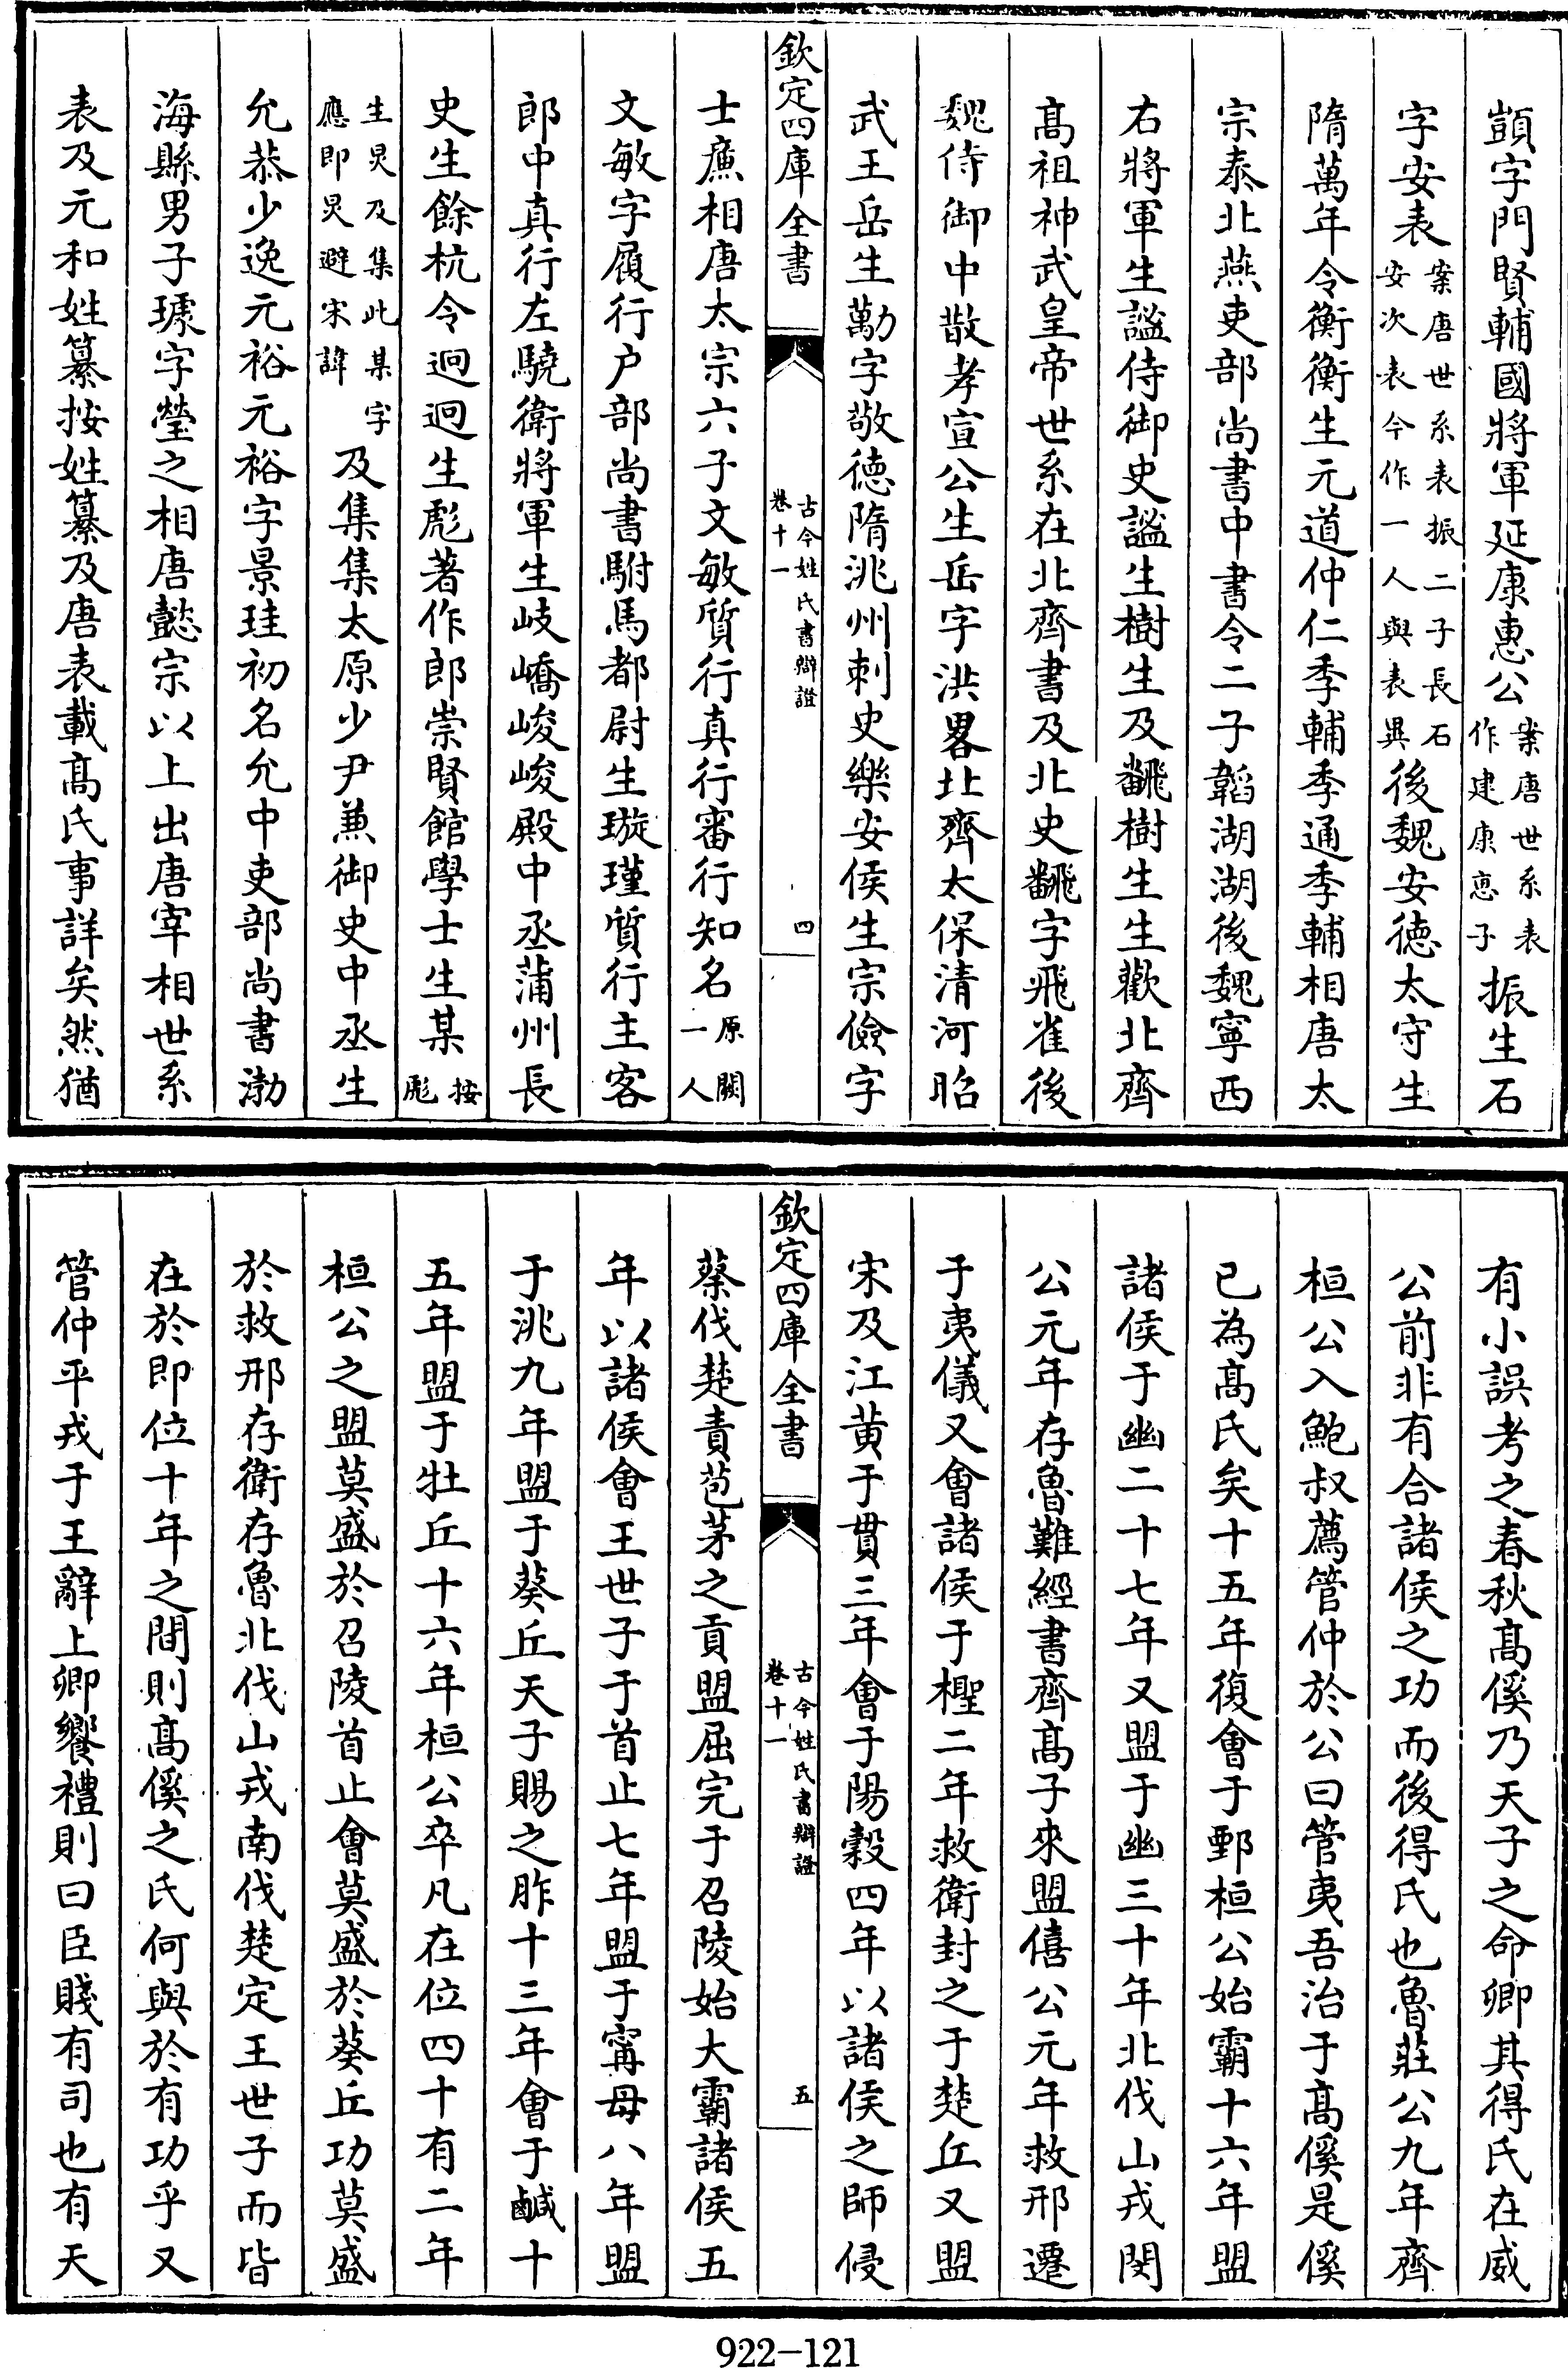 顗字門賢輔國將軍延康惠公案唐世系表作建康惠子振生石
字安表案唐世系表振二子長石安次表今作一人與表異後魏安德太守生
隋萬年令衡衡生元道仲仁季輔季通季輔相唐太
宗泰北燕吏部尚書中書令二子韜湖湖後魏寧西
右將軍生謐侍御史謐生樹生及飜樹生生歡北齊
髙祖神武皇帝世系在北齊書及北史飜字飛雀後
魏侍御中散孝宣公生岳字洪畧北齊太保清河昭
武王岳生勱字敬德隋洮州刺史樂安侯生宗儉字
欽定四庫全書
古今姓氏書辯證
卷十一
四
士廉相唐太宗六子文敏質行真行審行知名原闕一人
文敏字履行户部尚書駙馬都尉生璇瑾質行主客
郎中真行左驍衛將軍生岐嶠峻峻殿中丞蒲州長
史生餘杭令迥迥生彪著作郎崇賢館學士生某按彪
生炅及集此某字應即炅避宋諱及集集太原少尹兼御史中丞生
允恭少逸元裕元裕字景珪初名允中吏部尚書渤
海縣男子璩字瑩之相唐懿宗以上出唐宰相世系
表及元和姓纂按姓纂及唐表載髙氏事詳矣然猶
有小誤考之春秋髙傒乃天子之命卿其得氏在威
公前非有合諸侯之功而後得氏也魯莊公九年齊
桓公入鮑叔薦管仲於公曰管夷吾治于髙傒是傒
已為髙氏矣十五年復會于鄄桓公始霸十六年盟
諸侯于幽二十七年又盟于幽三十年北伐山戎閔
公元年存魯難經書齊髙子來盟僖公元年救邢遷
于夷儀又會諸侯于檉二年救衛封之于楚丘又盟
宋及江黄于貫三年會于陽穀四年以諸侯之師侵
欽定四庫全書
古今姓氏書辯證
卷十一
五
蔡伐楚責苞茅之貢盟屈完于召陵始大霸諸侯五
年以諸侯會王世子于首止七年盟于甯母八年盟
于洮九年盟于葵丘天子賜之胙十三年會于鹹十
五年盟于牡丘十六年桓公卒凡在位四十有二年
桓公之盟莫盛於召陵首止會莫盛於葵丘功莫盛
於救邢存衛存魯北伐山戎南伐楚定王世子而皆
在於即位十年之間則髙傒之氏何與於有功乎又
管仲平戎于王辭上卿饗禮則曰臣賤有司也有天
922-121